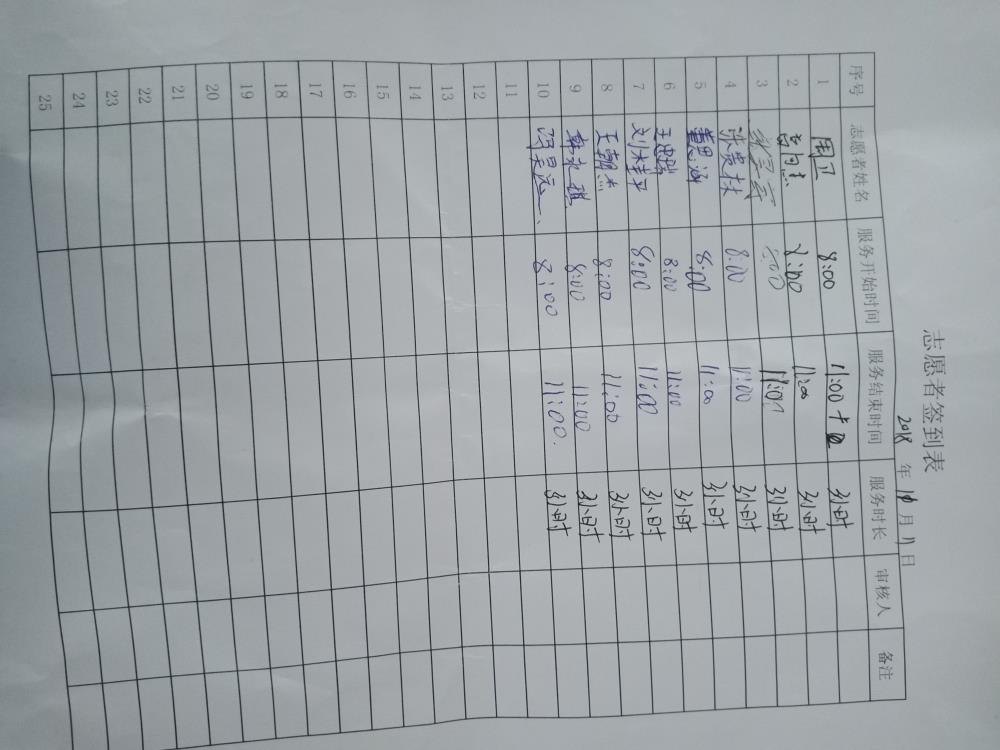 志愿者签到表
2018年10月11日
序号 志愿者姓名 服务开始时间 服务结束时间 服务时长 审核人 备注
1 周卫 8:00 11:00 3小时
2 8:00 11:00 3小时
3 8:00 11:00 3小时
4 8:00 11:00 3小时
5 8:00 11:00 3小时
6 8:00 11:00 3小时
7 8:00 11:00 3小时
8 8:00 11:00 3小时
9 8:00 11:00 3小时
10 8:00 11:00 3小时
11
12
13
14
15
16
17
18
19
20
21
22
23
24
25